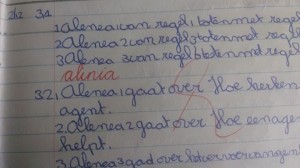 262 31
1 Alenea 1 van regel 1 tot en met regel
2 Alenea 2 van regel 7 tot en met regel
3 Alenea 3 van regel tot en met regel
alinia
32, 1 Alenea 1 gaat over Hoe herken
agent.
2. Alenea 2 gaat over Hoe een agen
helpt.
3 Alenea 3 gaat over